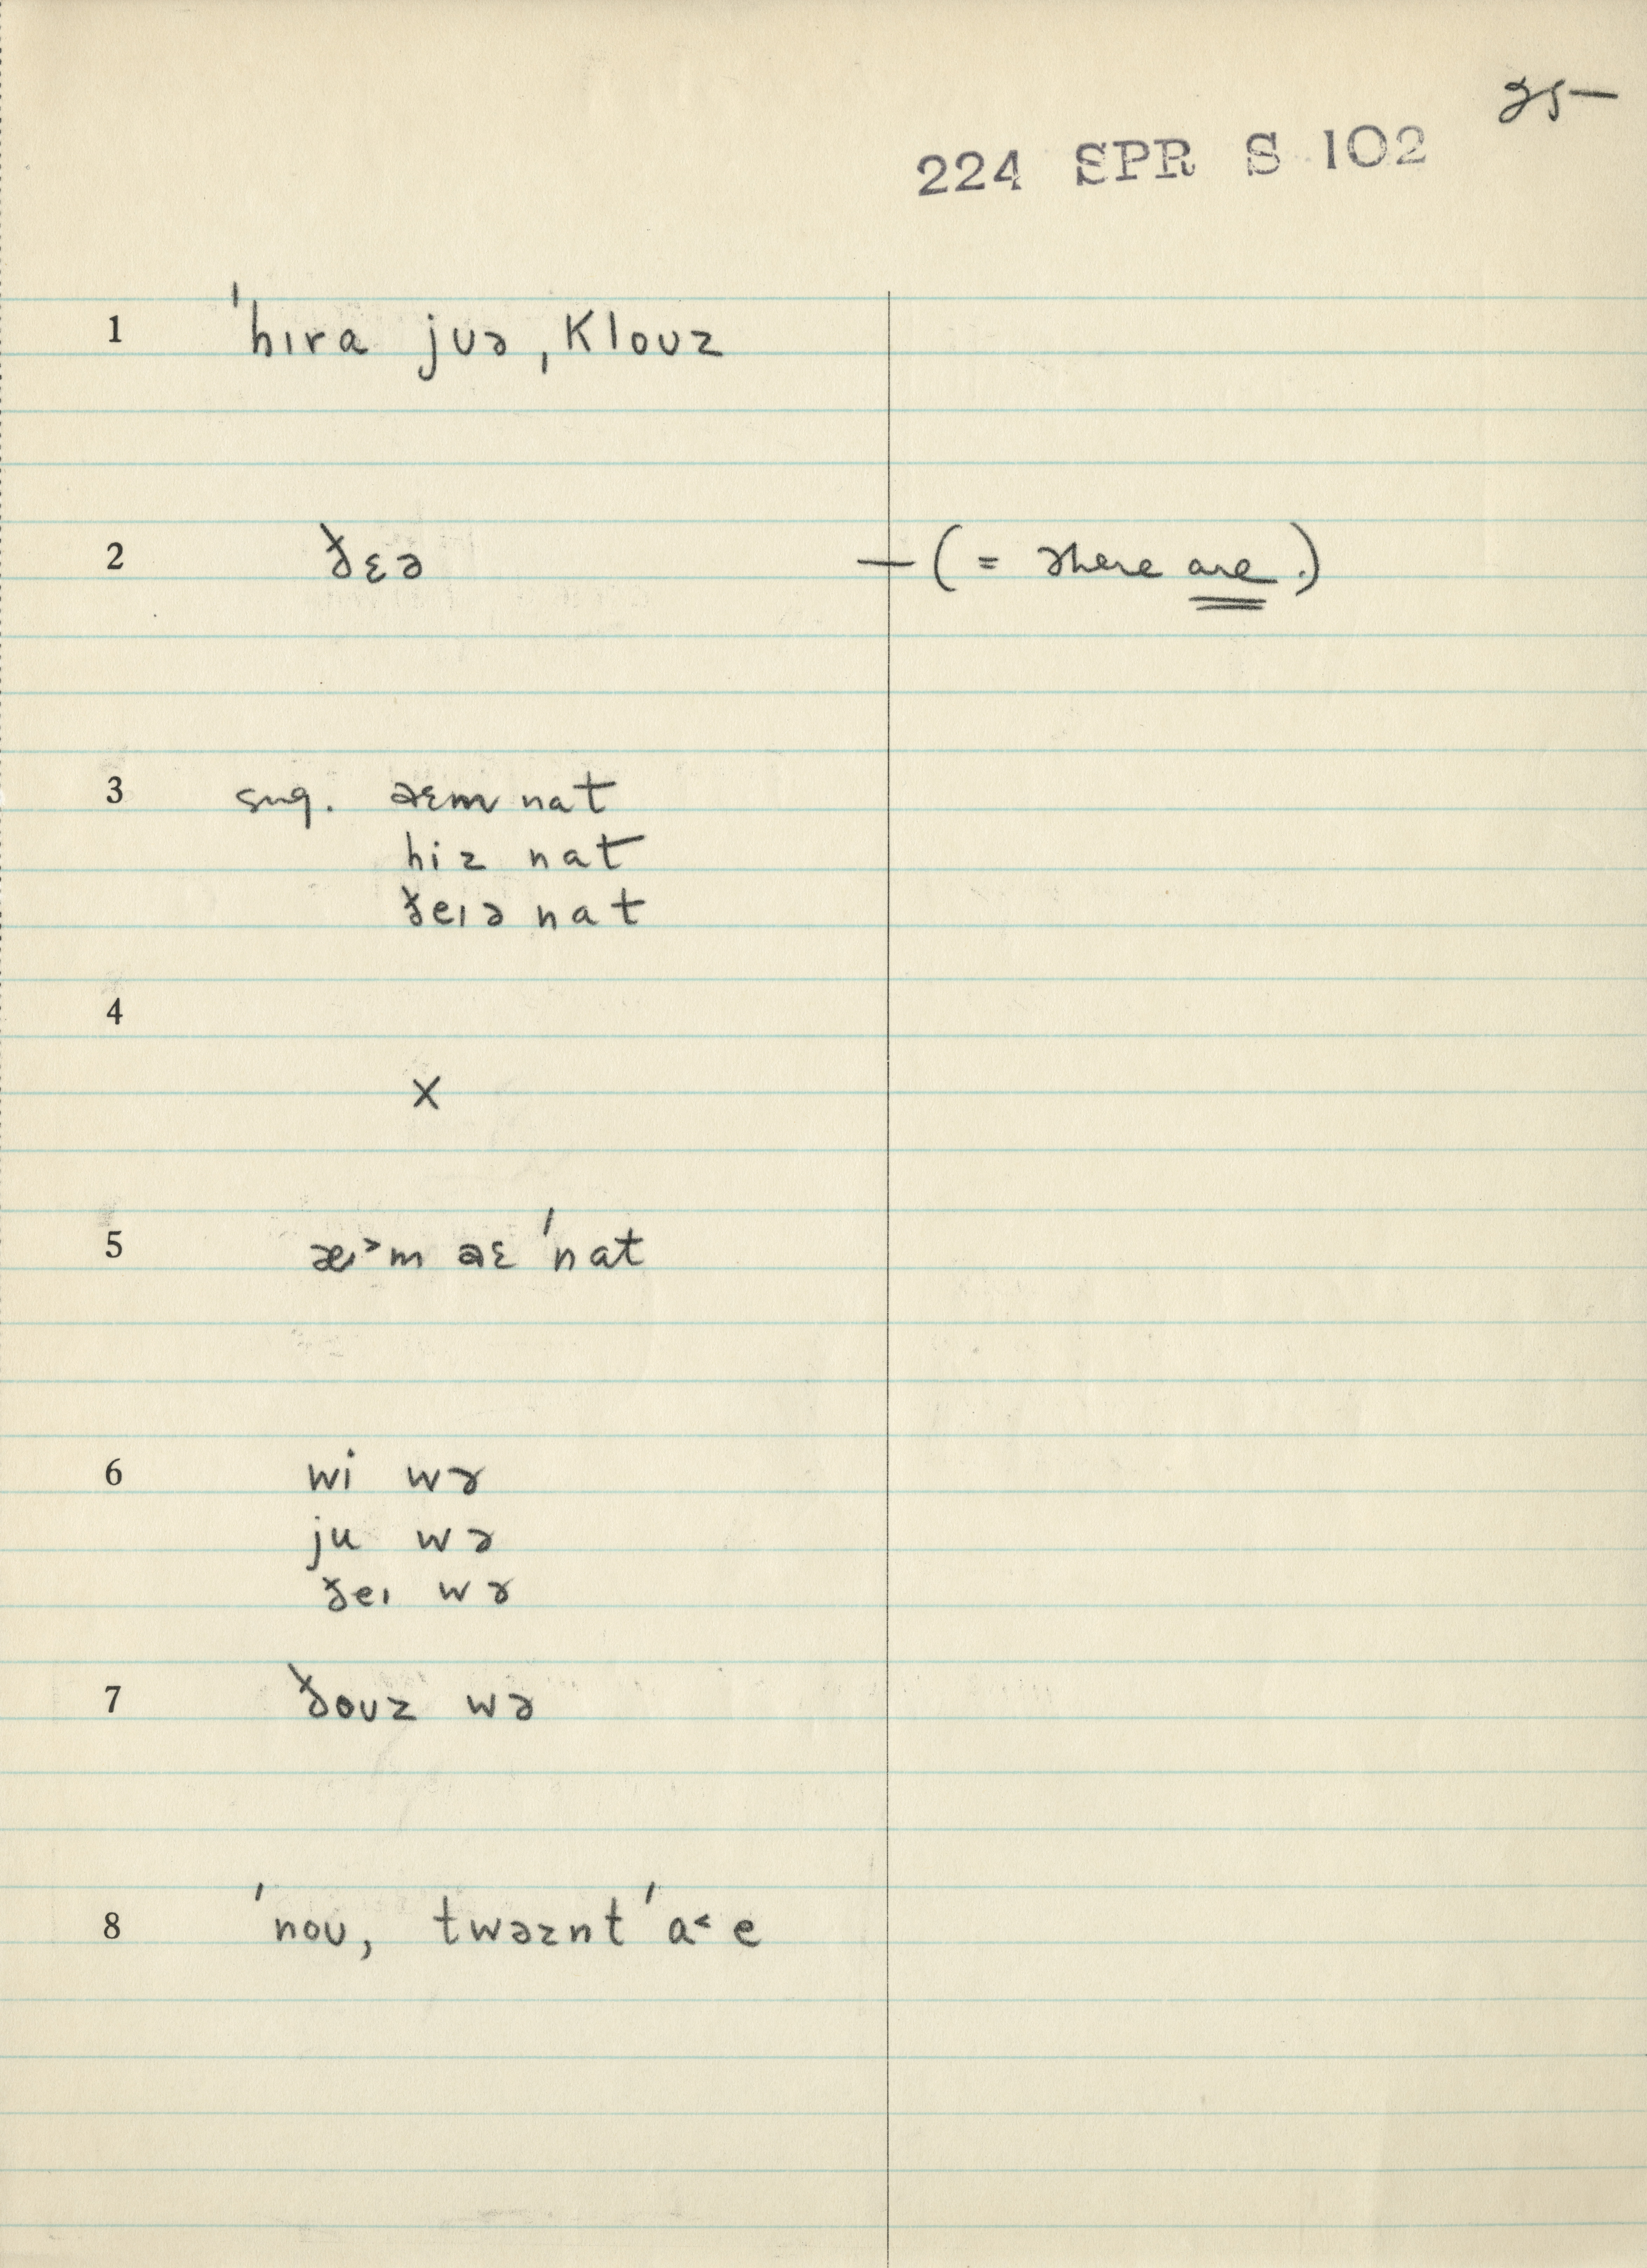 25–
224 SPR S 102
1 ˈhɪra jʊə ˌklouz
2 ðɛə — (= there are.)
3 sug. aɛm nat
hiz nat
ðeɪə nat
4
X
5 æɪ˃m aɛ ˈnat
6 wi wɚ
ju wə
ðeɪ wɚ
7 ðoʊz wə
8 ˈnoʊ, twəznt ˈa˂ e